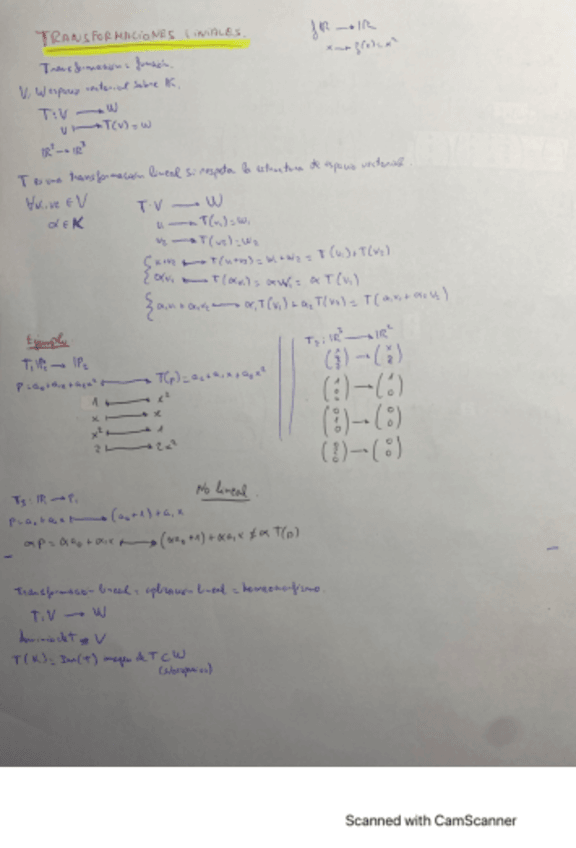 TRANSFORMACIONES LINEALES.
f: IR → IR
x → f(x) = x²
Transformación = función.
V, W espacio vectorial sobre K.
T: V → W
v → T(v) = w
T es una transformación lineal si respeta la estructura de espacio vectorial.
∀ v₁, v₂ ∈ V
α ∈ K
T: V → W
v₁ → T(v₁) = w₁
v₂ → T(v₂) = w₂
v₁+v₂ → T(v₁+v₂) = w₁+w₂ = T(v₁)+T(v₂)
αv₁ → T(αv₁) = αw₁ = αT(v₁)
α₁v₁+α₂v₂ → α₁T(v₁)+α₂T(v₂) = T(α₁v₁+α₂v₂)
Ejemplo
T₁: P₂ → P₂
p = a₀+a₁x+a₂x² → T(p) = a₂+a₁x+a₀x²
1 → x²
x → x
x² → 1
2 → 2x²
T₂: IR³ → IR²
No lineal.
T₃: P₁ → P₁
p = a₀+a₁x → (a₀+1)+a₁x
αp = αa₀+αa₁x → (αa₀+1)+αa₁x ≠ αT(p)
Transformación lineal = aplicación lineal = homomorfismo.
T: V → W
dominio de T V
= Im(T) imagen de T ⊂ W
(subespacio)
Scanned with CamScanner